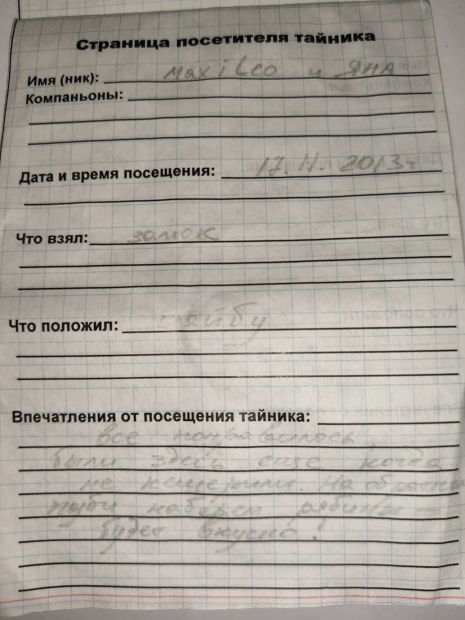 Страница посетителя тайника
Имя (ник): Maxileo и ЯНА
Компаньоны:
Дата и время посещения: 17.11.2013г
Что взял: замок
Что положил: шайбу
Впечатления от посещения тайника:
все понравилось,
были здесь еще когда
не кешерили. На обратном
пути наберем рябины -
будет вкусно!